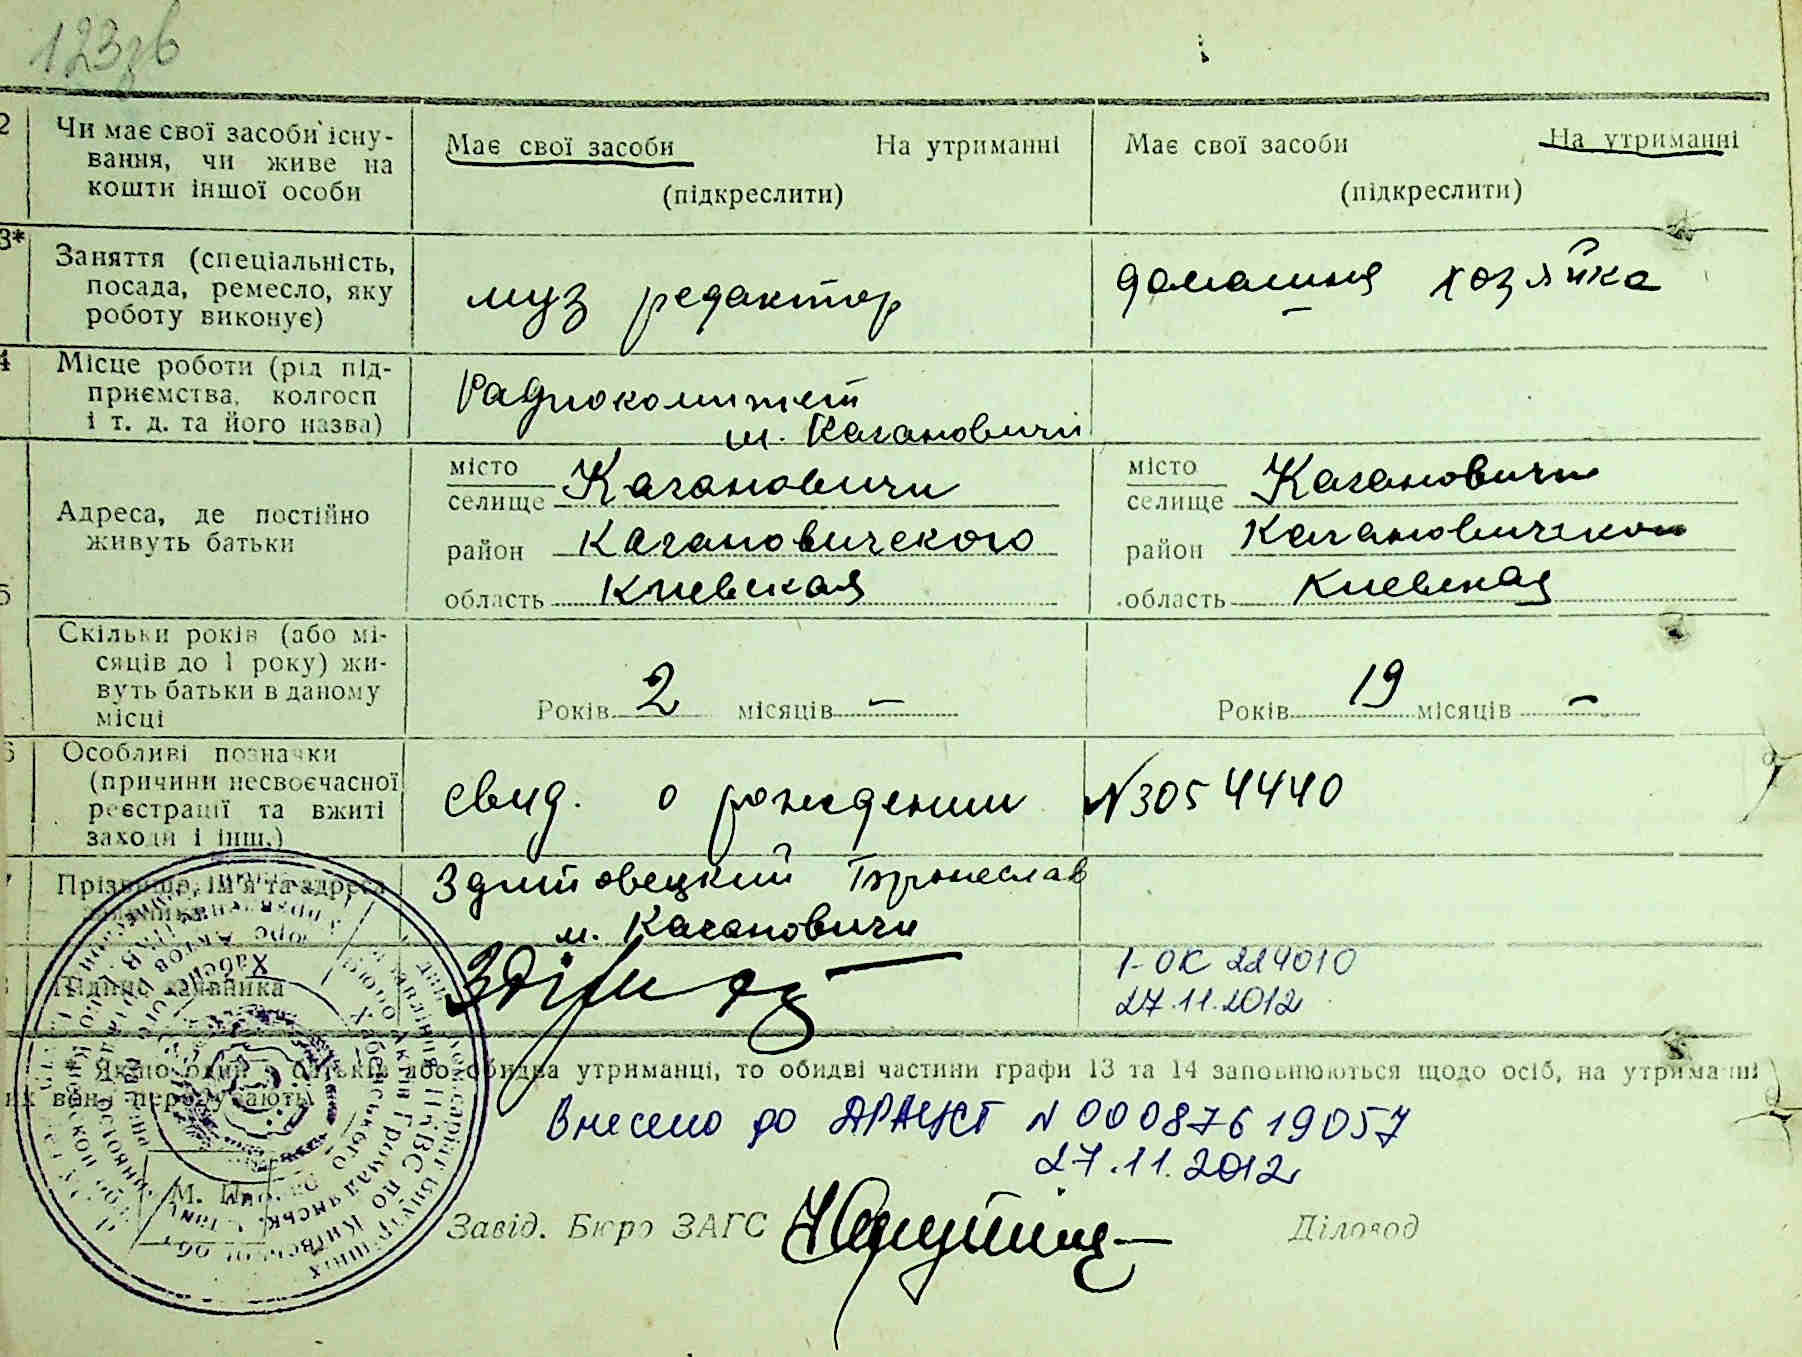 123зв
2 Чи має свої засоби існу-
вання, чи живе на
кошти іншої особи
Має свої засоби На утриманні
(підкреслити)
Має свої засоби На утриманні
(підкреслити)
3* Заняття (спеціальність,
посада, ремесло, яку
роботу виконує)
муз редактор
домашня хозяйка
4 Місце роботи (рід під-
приємства, колгосп
і т. д. та його назва)
Радиокомитет
м. Кагановичи
5 Адреса, де постійно
живуть батьки
місто
селище Кагановичи
район Кагановического
область Киевская
місто
селище Кагановичи
район
область Киевская
Скільки років (або мі-
сяців до 1 року) жи-
вуть батьки в даному
місці
Років 2 місяців –
Років 19 місяців –
6 Особливі позначки
(причини несвоєчасної
реєстрації та вжиті
заходи і інш.)
свид. о рождении N 3054440
7 Прізвище, ім'я та адреса
заявника
Здитовецкий Бронеслав
м. Кагановичи
Підпис заявника
1-ОК 224010
27.11.2012
* Якщо один з батьків або обидва утриманці, то обидві частини графи 13 та 14 заповнюються щодо осіб, на утриманні
них вони перебувають
Внесено до ДРАЦСГ N 00087619057
27.11.2012
М. П.
Завід. Бюро ЗАГС
Діловод